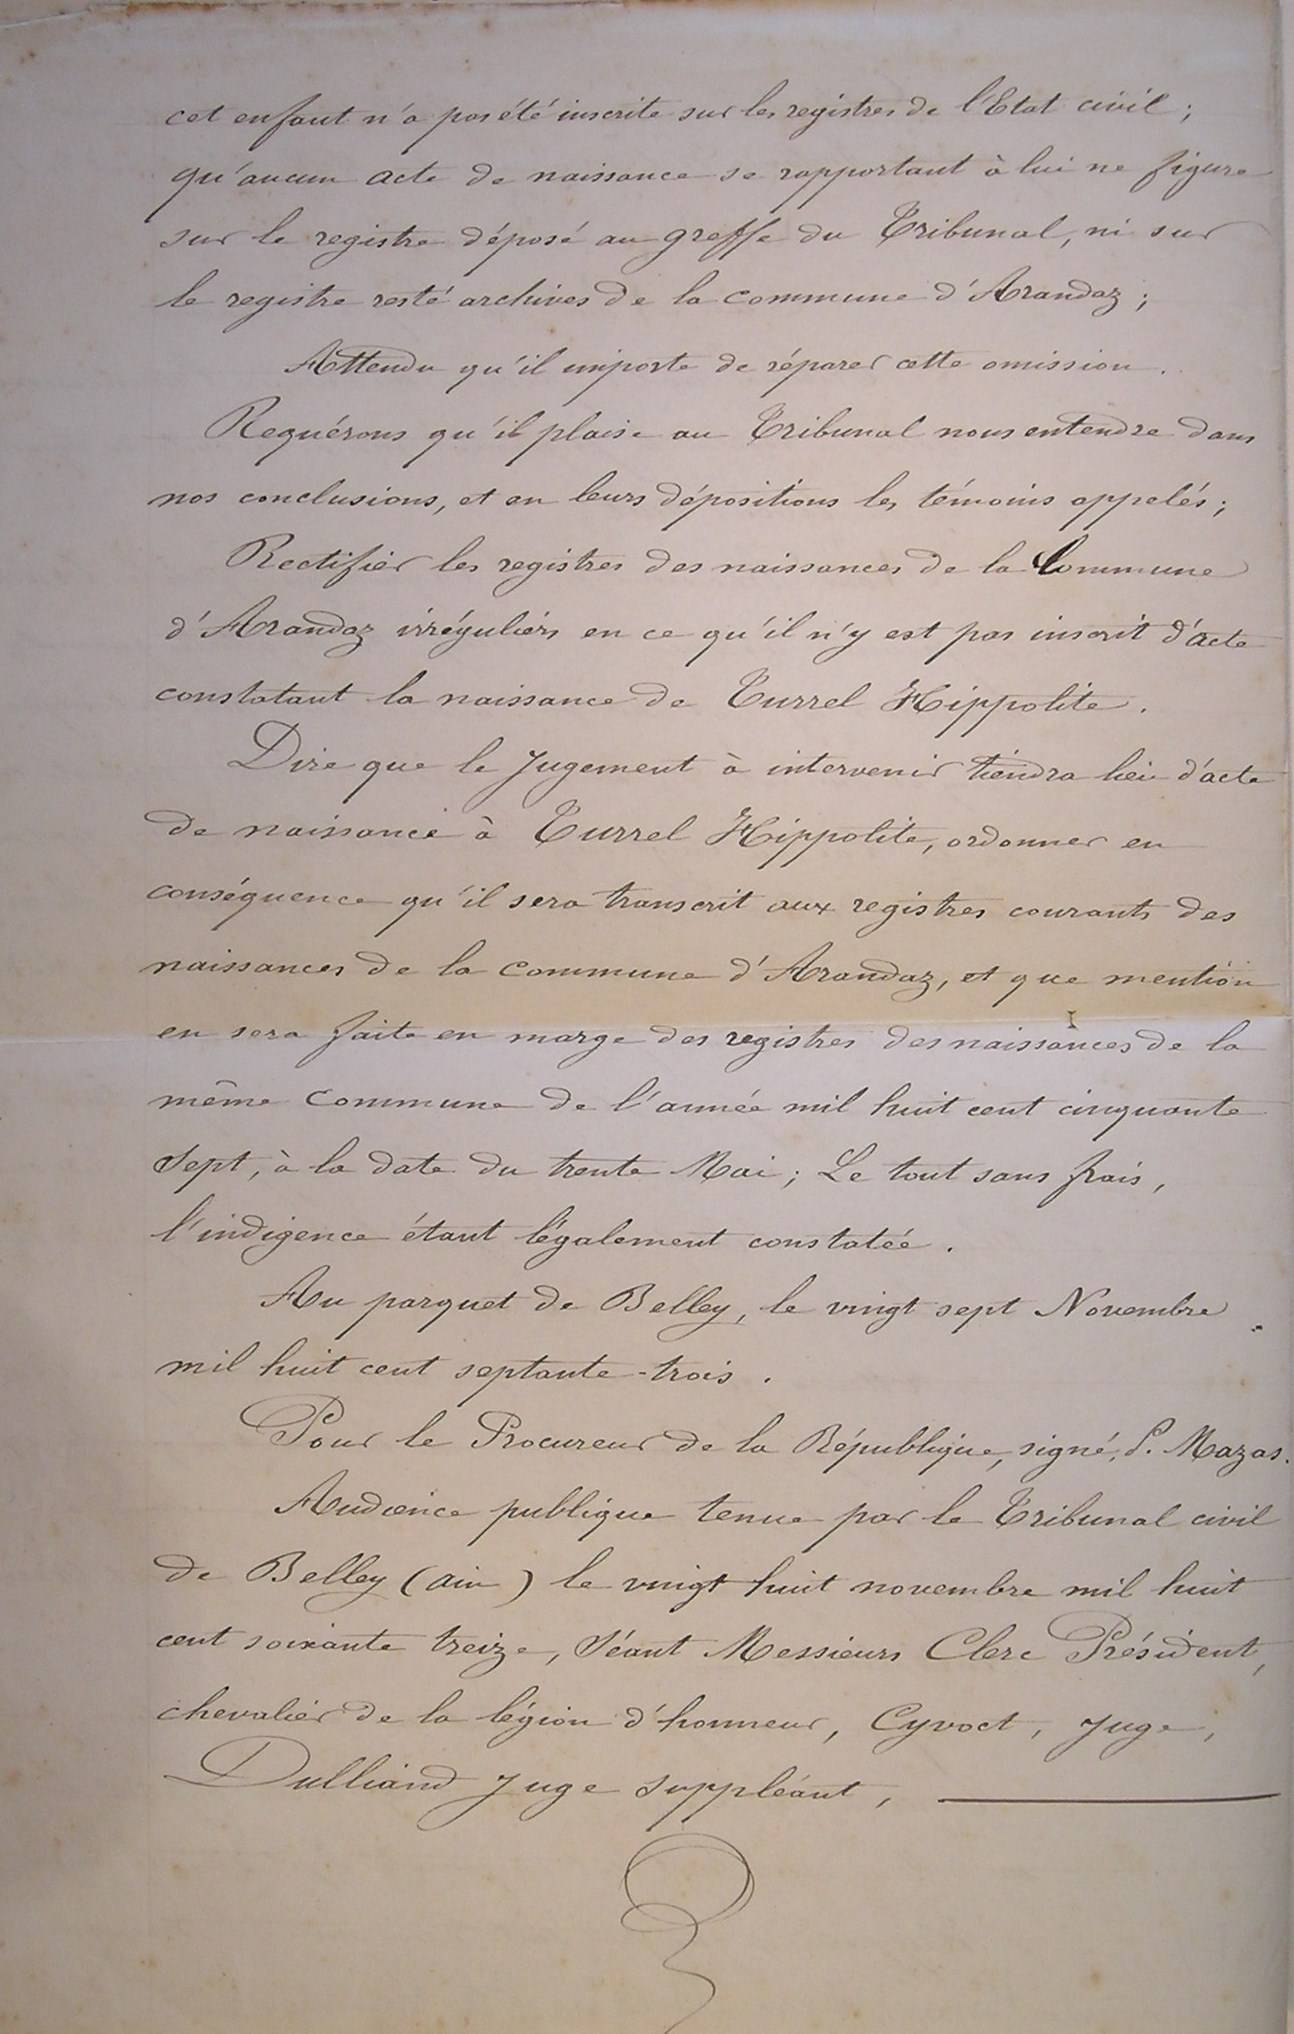 cet enfant n'a pas été inscrite sur les registres de l'Etat civil ;
qu'aucun acte de naissance se rapportant à lui ne figure
sur le registre déposé au greffe du Tribunal, ni sur
le registre resté archives de la commune d'Arandaz ;
Attendu qu'il importe de réparer cette omission.
Requérons qu'il plaise au Tribunal nous entendre dans
nos conclusions, et en leurs dépositions les témoins appelés ;
Rectifier les registres des naissances de la Commune
d'Arandaz irréguliers en ce qu'il n'y est pas inscrit d'acte
constatant la naissance de Turrel Hippolite.
Dire que le Jugement à intervenir tiendra lieu d'acte
de naissance à Turrel Hippolite, ordonner en
conséquence qu'il sera transcrit aux registres courants des
naissances de la commune d'Arandaz, et que mention
en sera faite en marge des registres des naissances de la
même commune de l'année mil huit cent cinquante
sept, à la date du trente Mai ; Le tout sans frais,
l'indigence étant légalement constatée.
Au parquet de Belley, le vingt sept Novembre
mil huit cent septante-trois.
Pour le Procureur de la République, signé, P. Mazas.
Audience publique tenue par le Tribunal civil
de Belley (ain) le vingt huit novembre mil huit
cent soixante treize, Séant Messieurs Clerc Président,
chevalier de la légion d'honneur, Cyvoct, Juge,
Dulliand Juge suppléant,